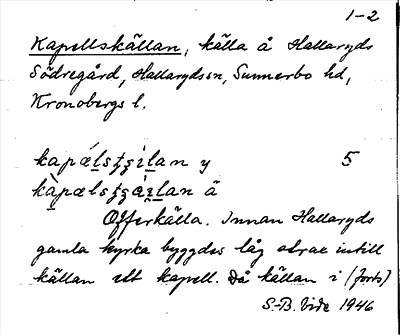 1-2
Kapellskällan, källa å Hallaryds
Södregård, Hallaryds sn, Sunnerbo hd,
Kronobergs l.
kapǽlsʈʂìlan y 5
kàpælsʈʂæ̀lan ä
Offerkälla. Innan Hallaryds
gamla kyrka byggdes låg strax intill
källan ett kapell. Då källan i (forts)
S.-B. Vide 1946